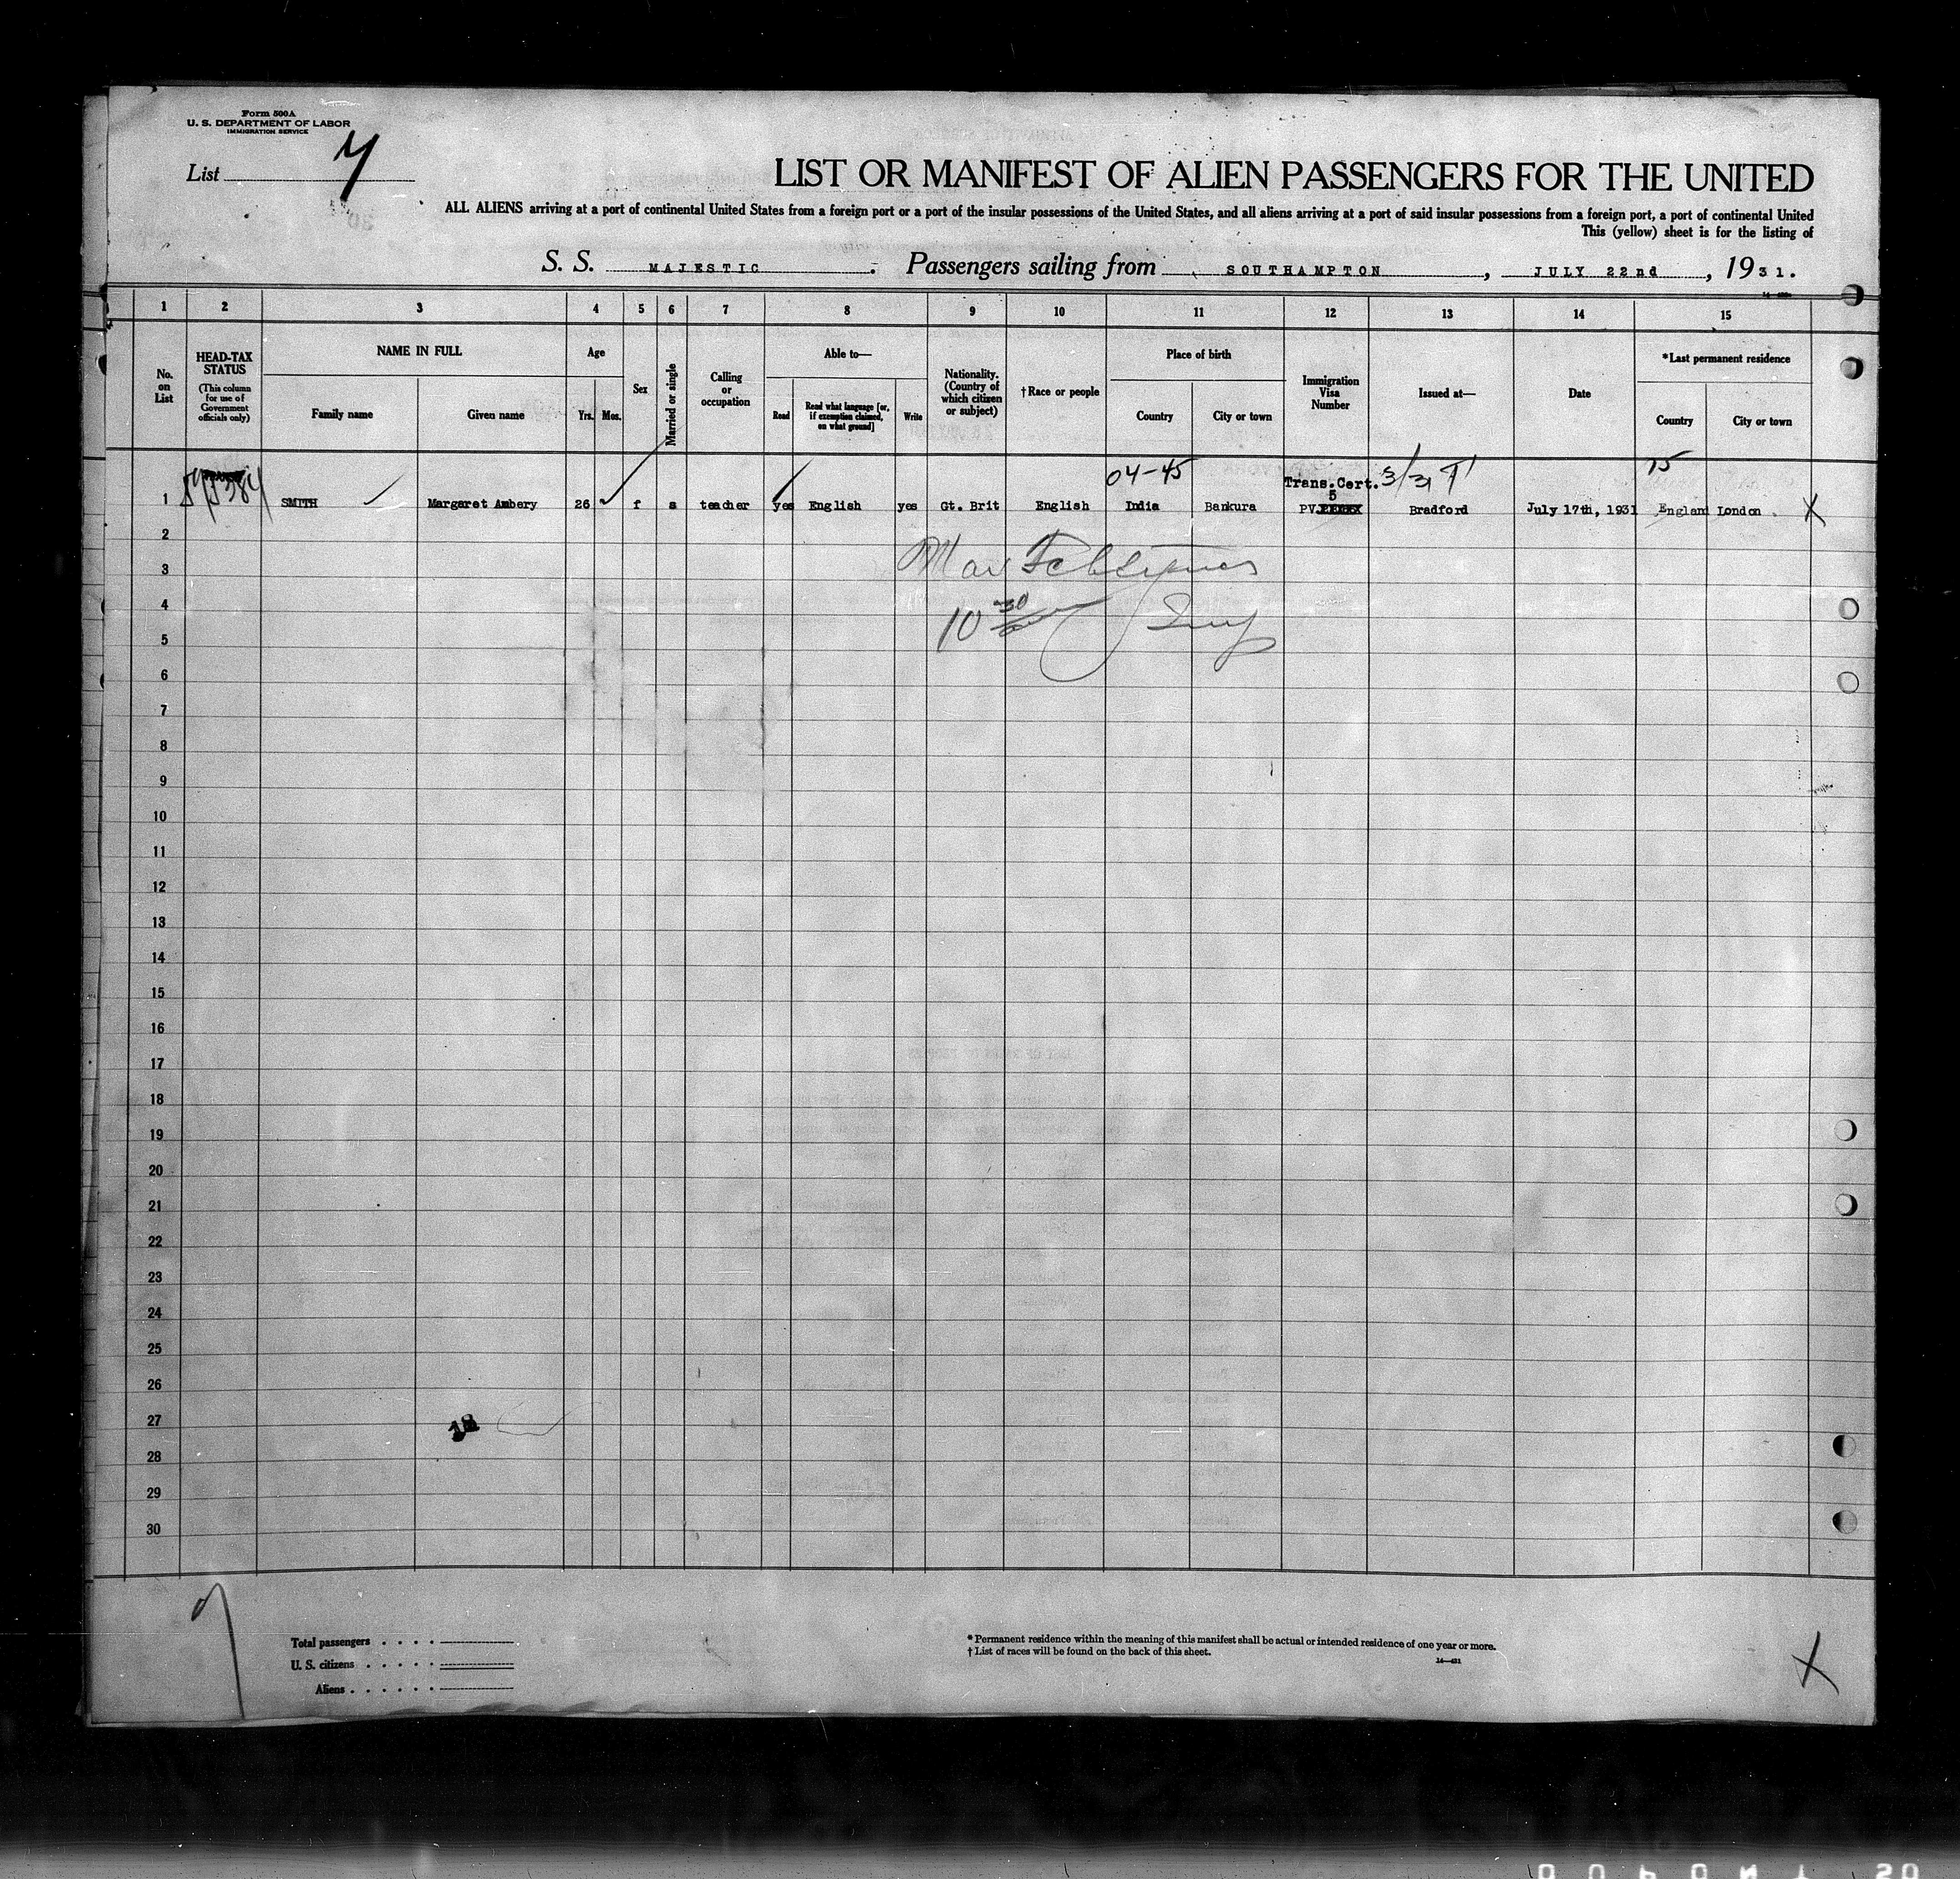 Form 500A
U. S. DEPARTMENT OF LABOR
IMMIGRATION SERVICE
List 7
LIST OR MANIFEST OF ALIEN PASSENGERS FOR THE UNITED
ALL ALIENS arriving at a port of continental United States from a foreign port or a port of the insular possessions of the United States, and all aliens arriving at a port of said insular possessions from a foreign port, a port of continental United
This (yellow) sheet is for the listing of
S. S. MAJESTIC. Passengers sailing from SOUTHAMPTON, JULY 22nd, 1931.
1 2 3 4 5 6 7 8 9 10 11 12 13 14 15
No. on List
HEAD-TAX STATUS
(This column for use of Government officials only)
NAME IN FULL
Family name
Given name
Age
Yrs. Mos.
Sex
Married or single
Calling or occupation
Able to—
Read
Read what language [or, if exemption claimed, on what ground]
Write
Nationality. (Country of which citizen or subject)
†Race or people
Place of birth
Country
City or town
Immigration Visa Number
Issued at—
Date
*Last permanent residence
Country
City or town
04-45
15
Trans. Cert. 3/31
5
1 SMITH Margaret Ambery 26 f s teacher yes English yes Gt. Brit English India Bankura PV. Bradford July 17th, 1931 England London X
2
3
4
10 30
5
6
7
8
9
10
11
12
13
14
15
16
17
18
19
20
21
22
23
24
25
26
27
18
28
29
30
Total passengers . . . .
U. S. citizens . . . . .
Aliens . . . . . .
*Permanent residence within the meaning of this manifest shall be actual or intended residence of one year or more.
†List of races will be found on the back of this sheet.
X